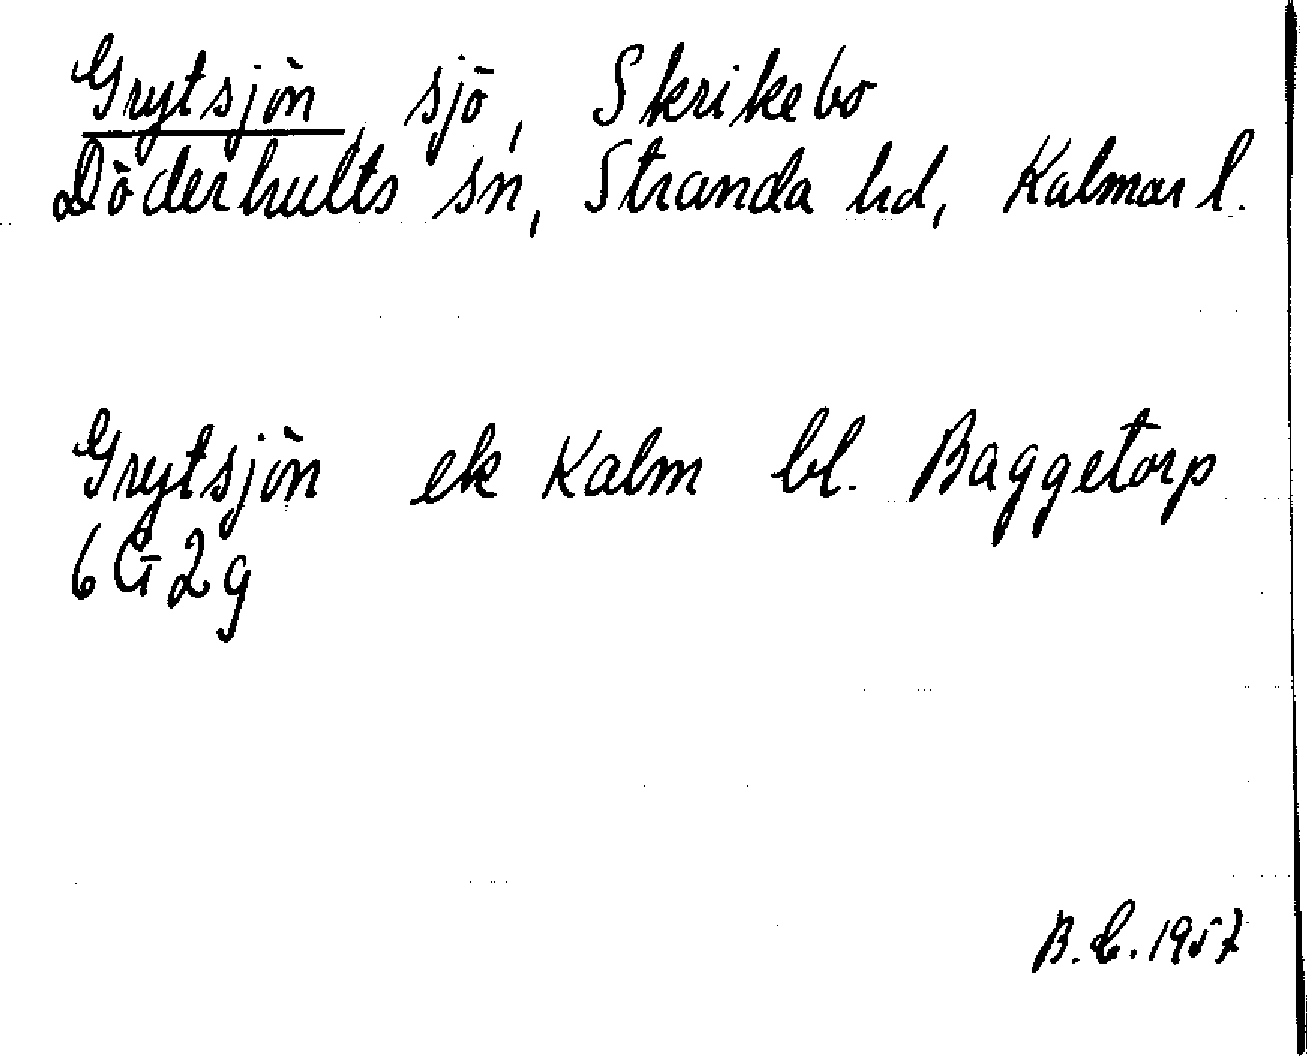 Grytsjön sjö, Skrikebo
Döderhults sn, Stranda hd, Kalmar l.
Grytsjön ek Kalm bl. Baggetorp
6 G 2 g
B. E. 1957